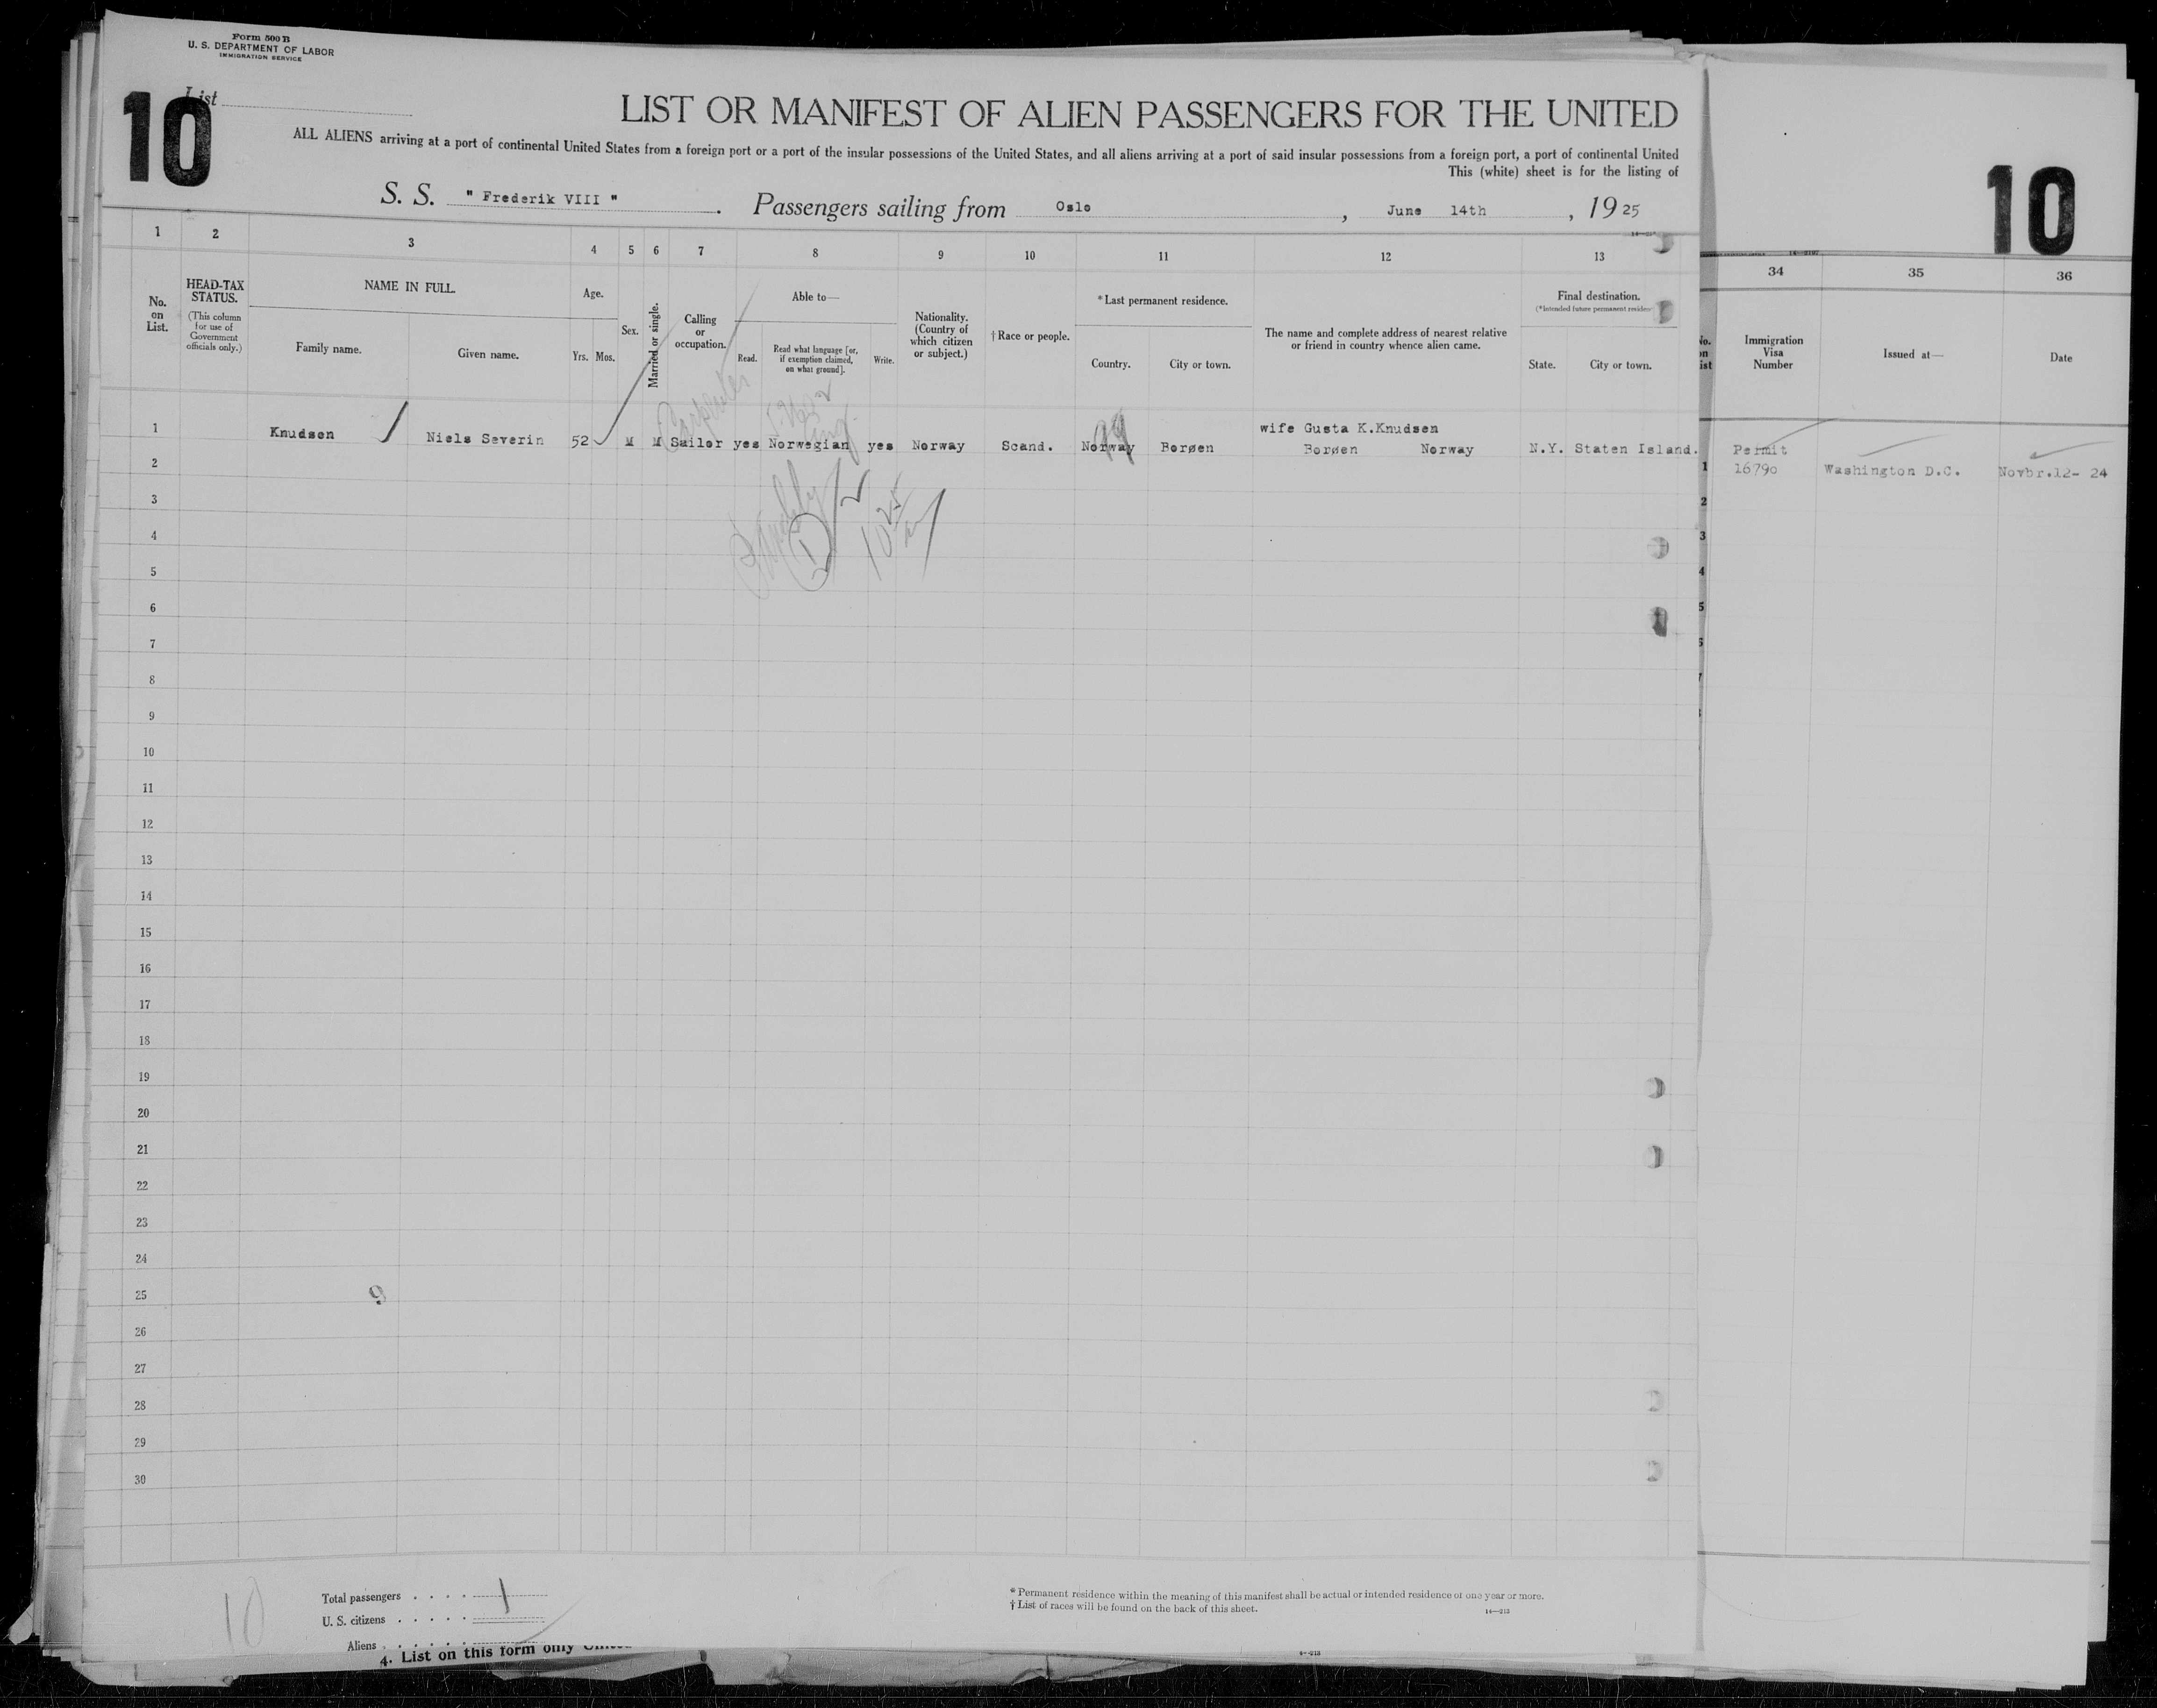 Form 500 B
U. S. DEPARTMENT OF LABOR
IMMIGRATION SERVICE
List
10
LIST OR MANIFEST OF ALIEN PASSENGERS FOR THE UNITED
10
ALL ALIENS arriving at a port of continental United States from a foreign port or a port of the insular possessions of the United States, and all aliens arriving at a port of said insular possessions from a foreign port, a port of continental United
This (white) sheet is for the listing of
S. S. " Frederik VIII " . Passengers sailing from Oslo , June 14th , 1925
1 2 3 4 5 6 7 8 9 10 11 12 13 34 35 36
No. on List.
HEAD-TAX STATUS.
(This column for use of Government officials only.)
NAME IN FULL.
Family name.
Given name.
Age.
Yrs. Mos.
Sex.
Married or single.
Calling or occupation.
Able to—
Read.
Read what language [or, if exemption claimed, on what ground].
Write.
Nationality. (Country of which citizen or subject.)
† Race or people.
* Last permanent residence.
Country.
City or town.
The name and complete address of nearest relative or friend in country whence alien came.
Final destination.
(*Intended future permanent residen
State.
City or town.
No. on ist
Immigration Visa Number
Issued at—
Date
Carpenter
wife Gusta K.Knudsen
1 Knudsen Niels Severin 52 M M Sailor yes Norwegian yes Norway Scand. Norway Borøen Borøen Norway N.Y. Staten Island.
Permit
1 16790 Washington D.C. Novbr.12- 24
2
3
4
5
6
7
8
9
10
11
12
13
14
15
16
17
18
19
20
21
22
23
24
25
9
26
27
28
29
30
10
Total passengers . . . . 1
U. S. citizens . . . . .
Aliens . . . . . .
* Permanent residence within the meaning of this manifest shall be actual or intended residence of one year or more.
† List of races will be found on the back of this sheet.
14—213
4. List on this form only